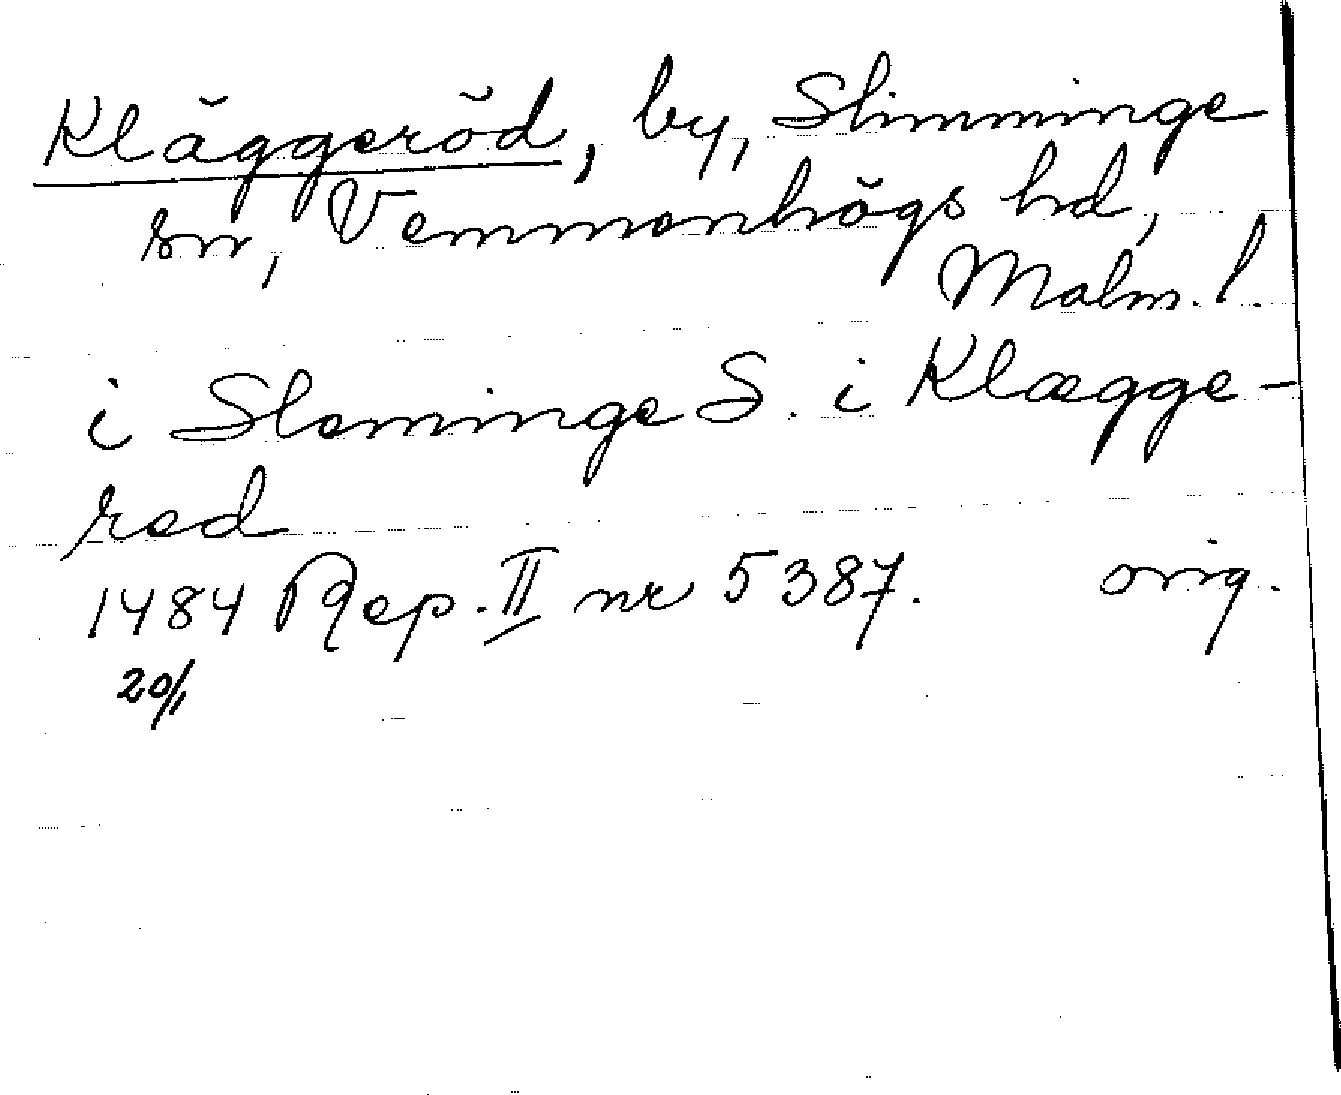 Kläggeröd, by, Slimminge
sn, Vemmenhögs hd,
Malm. l.
i Sleminge S. i Klægge-
red
1484 Rep. II nr 5387. orig.
20/1